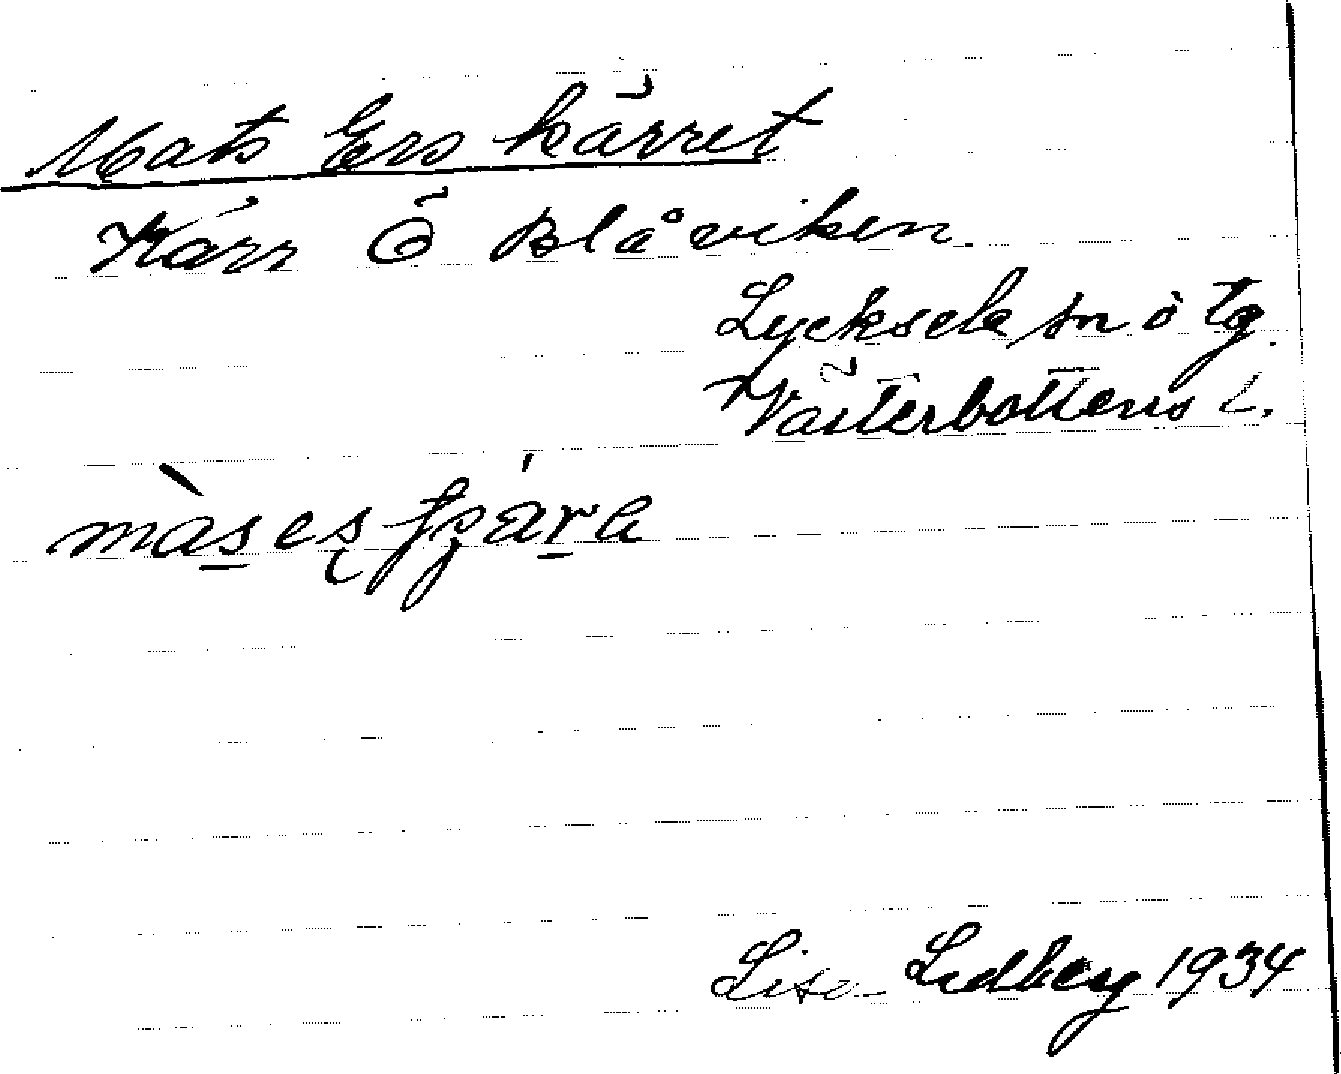 Mats Ers kärret
Kärr Ö Blåviken.
Lycksele sn o tg.
Västerbottens l.
Lisa Lidberg 1934